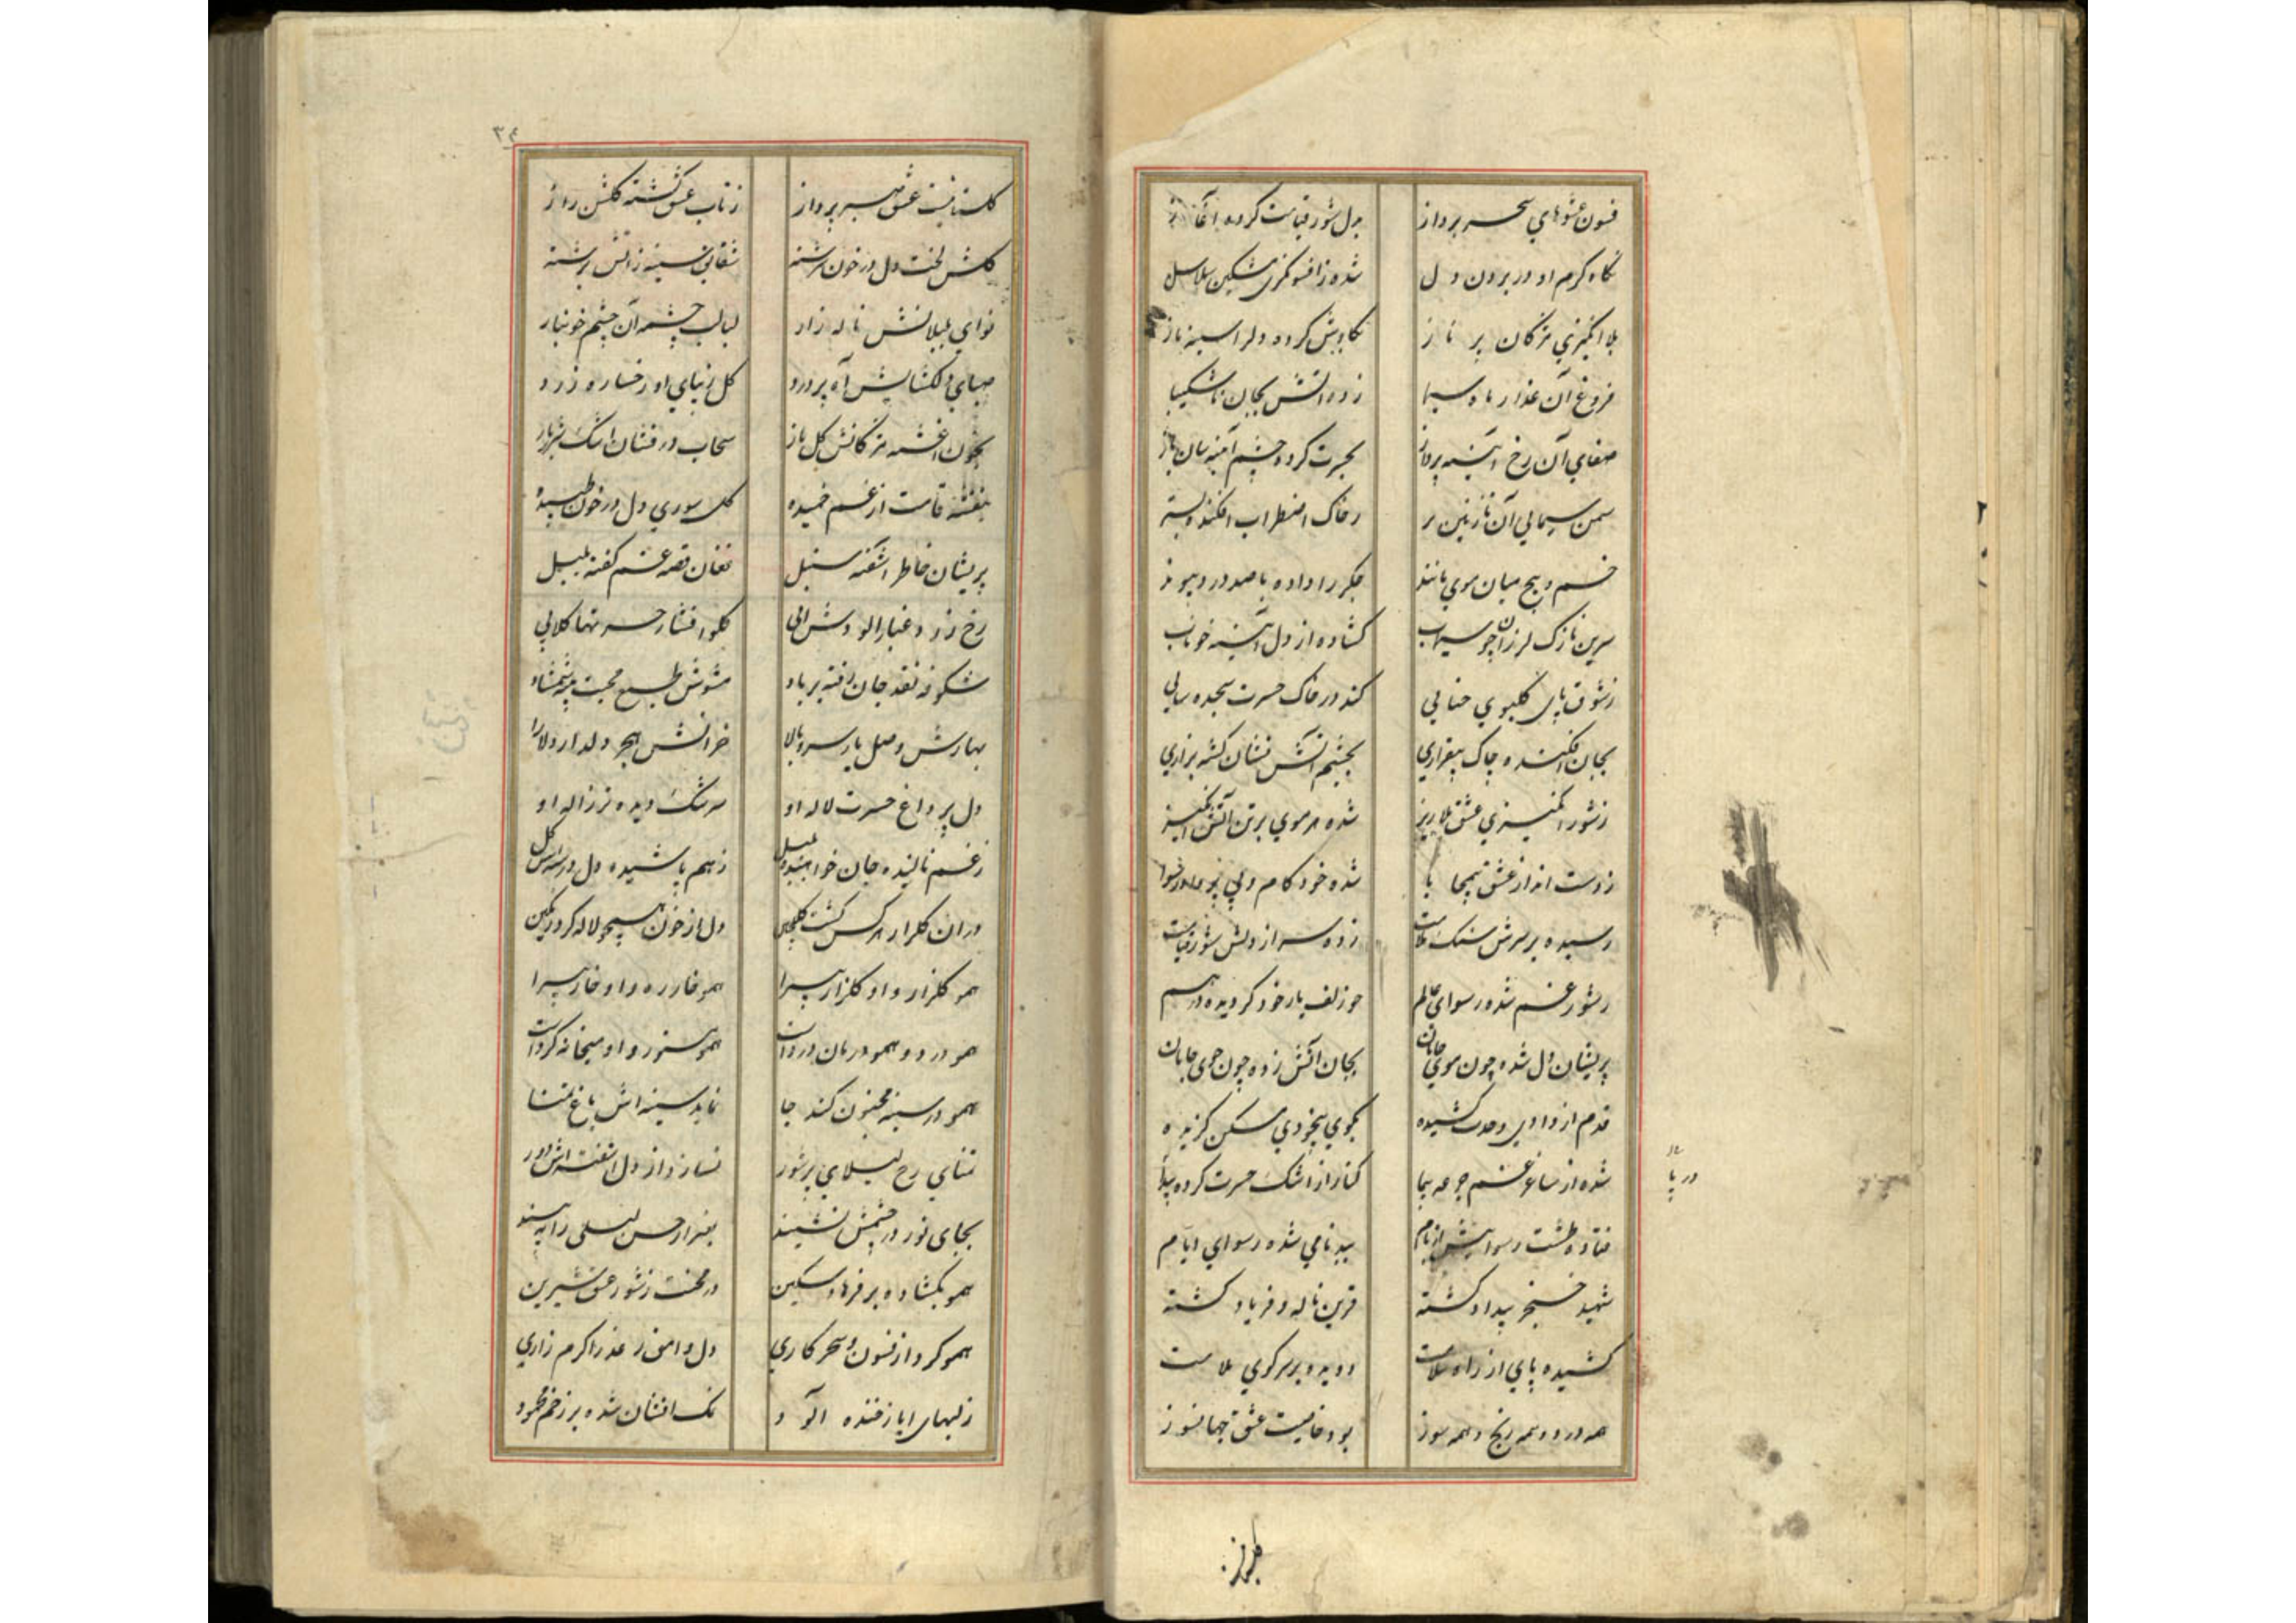 فسون عشوهای سحر پرداز بدل شور قیامت کرده آغاز
نگاه کرم او در بردن دل شده ز افسونگری مشکین سلاسل
بلا انگیزی مژکان پر ناز بکاوش کرده دلرا سینه باز
فروغ آن عذار ماه سیما زده آتش بجان ناشکیبا
صفای آن رخ آئینه پرداز بحیرت کرده چشم آینه سان باز
سمن سیمایی آن نازنین بر بخاک اضطراب افکنده بستر
خم و پیچ میان موی مانند جکر را داده با صد درد پیوند
سرین نازک لرزان چو سیماب کشاده از دل آئینه خوناب
ز شوق پای کلبوی حنایی کند در خاک حسرت سجده سایی
بجان افکنده چاک بیقراری بچشم آتش نشان کشته بزاری
ز شور انگیزی عشق بلاریز شده هر موی بر تن آتش انگیز
ز دست انداز عشق بیمحابا شده خود کام ولی
رسیده بر سرش سنک ملامت زده سر از دلش شور قیامت
ز شور غم شده رسوای عالم چو زلف یار خود کردیده درهم
پریشان دل شده چون موی جانان بجان آتش زده چون خوی جانان
قدم از وادی وحدت کشیده بکوی بیخودی مسکن کزیده
شده از ساغر غم جرعه پیما کنار از اشک حسرت کرده دریا
فتاده طشت رسواییش از بام ببدنامی شده رسوای ایام
شهید خنجر بیداد کشته قرین ناله و فریاد کشته
کشیده پای از راه سلامت دویده بر سر کوی ملامت
همه درد و همه رنج و همه سوز بود خاصیت عشق جهانسوز
دریا
۳۴
کلستانیست عشق سر پرداز ز تاب عشق کشته کلشن راز
کلش لخت دل در خون سرشته شقایق سینه ز آتش برشته
نوای بلبلانش ناله زار لبالب چشمه آن چشم خونبار
صبای دلکشایش آه پر درد کل زیبای او رخساره زرد
بخون آغشته مژکانش کل باز سحاب درفشان اشک شرربار
بنفشه قامت از غم خمیده کل سوری دل در خون طپیده
پریشان خاطر آشفته سنبل فغان قصه غم کفته بلبل
رخ زرد و غبار آلودش آبی کلو افشار حسرتها کلابی
شکوفه نقد جان رفته بر باد مشوش طبع محبت پیشه شمشاد
بهارش وصل یار سرو بالا خزانش هجر دلدار دلارا
دل پر داغ حسرت لاله او سرشک دیده تر ژاله او
ز غم نالیده جان بلبل ز هم پاشیده دل کل
در ان کلزار هر کس کشت کلچین دل از خون همچو لاله کرد رنکین
همو کلزار و او کلزار پیرا همو خار ره و او خار پیرا
همو درد و همو درمان درد است همو او میخانه کرد است
همو در سینه مجنون کند جا نماید سینه اش باغ تمنا
تمنای رخ لیلای پر شور نسازد از دل آشفته اش دور
بجای نور در چشمش نشیند بغیر از حسن لیلی را نه بیند
همو بکشاده بر فرهاد مسکین در محنت ز شور عشق شیرین
همو کرد از فسون و سحر کاری دل وامق ز عذرا کرم زاری
ز لبهای ایاز خنده آلود نمک افشان شده بر زخم محمود